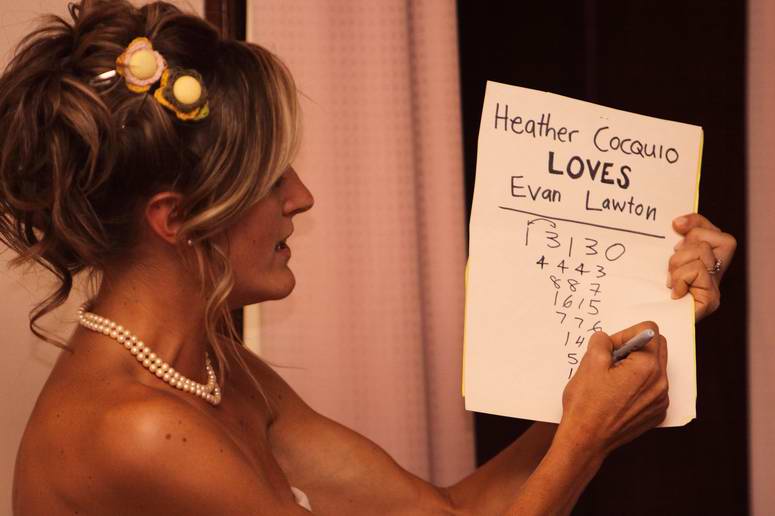 Heather Cocquio
LOVES
Evan Lawton
13130
4443
887
1615
776
14
5
1